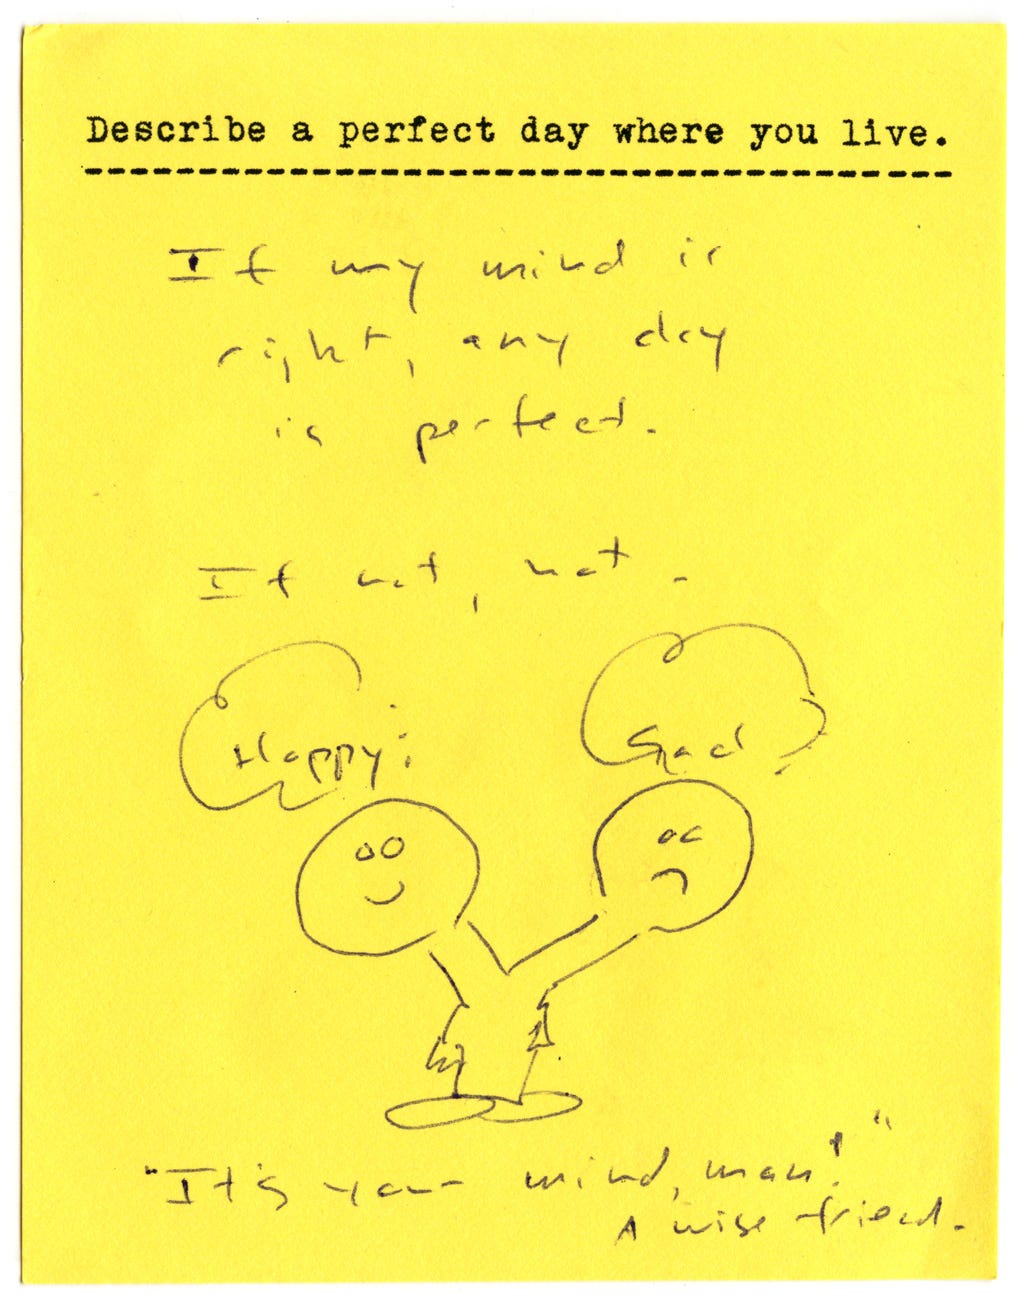 Describe a perfect day where you live.
If my mind is
right, any day
is perfect.
If not, not.
Happy!
Sad
"It's your mind, man!"
A wise friend.